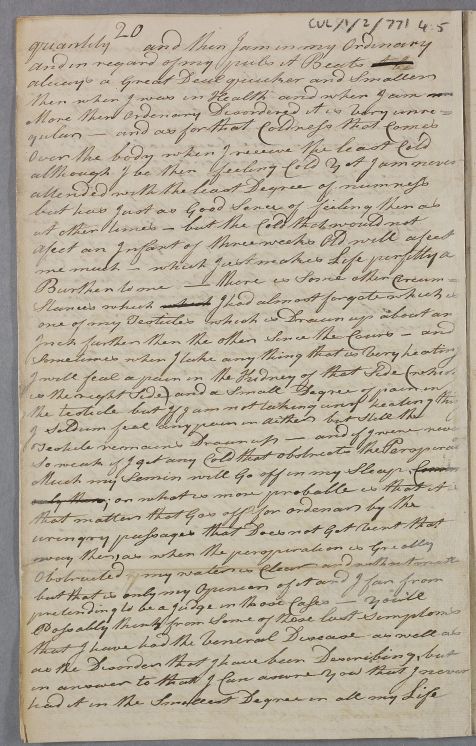 CUL/1/2/771 4.5
20
quantity and then I am in my Ordinary
and in regard of my puls it Beats
always a Great Deal quicker and Smaller
then when I was in Health and when I am
More then Ordenary Disordered it is very unre=
gular – and as for that Coldness that Comes
Over the body when I receive the least Cold
although I be then feeling Cold yet I am never
attended with the least Degree of numness
but has Just as Good Sence of feiling then as
at other times – but the Cold that would not
afect an Infant of three weeks Old will afect
me much – which Just makes Life purfitly a
Burthen to me – there is Some other Circum=
stances which I had almost forgote which is
one of my Testicles which is Drawn up about an
Inch further then the other Since the – and
Sometimes when I take any thing that is very heating
I will feal a pain in the Kidney of that Side (which
is the right Side) and a Small Degree of pain in
the testicle but if I am not taking any heating thing
I Seldum feel any pain in aither but Still the
Testicle remains Drawn up – and if I grow
So weak if I get any Cold that obstructs the Perspiration
Much my Semin will Go off in my Sleap
or what is more probable is that it is
that matter that Goes off for ordenary by the
uringry passages that Does not Get vent that
way then, as when the perspiration is Greatly
Obstructed my water is Clear and
but that is only my Openion of it and I far from
pretending to be a Judge in those Cases – You'll
Possably think from Some of these last Simptoms
that I have had the Veneral Disease as well as
as the Disorder that I have been Describing, but
in answer to that I Can asure you that I never
had it in the Smallest Degree in all my Life